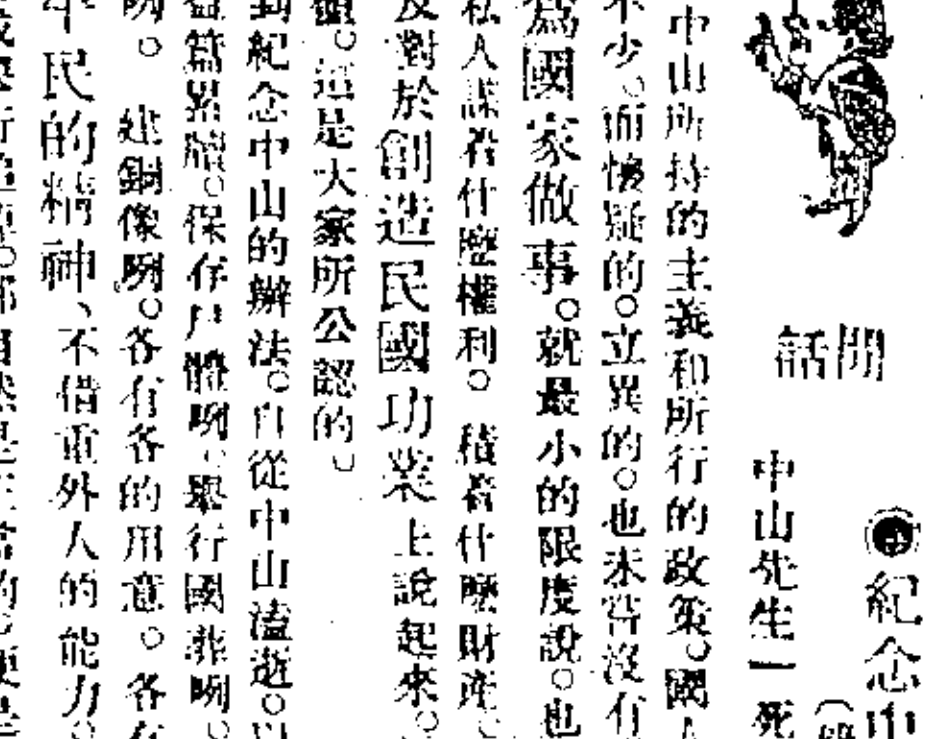 閒話
紀念中山
中山先生一死
中山所持的主義和所行的政策。國人
不少。而懷疑的。立異的。也未嘗沒有
為國家做事。就最小的限度說。也
私人謀着什麼權利。積着什麼財產。
反對於創造民國功業上說起來。
這是大家所公認的。
到紀念中山的辦法。自從中山溘逝。以
篇累牘。保存尸體咧。舉行國葬咧。
咧。建銅像咧。各有各的用意。各有
平民的精神、不借重外人的能力。